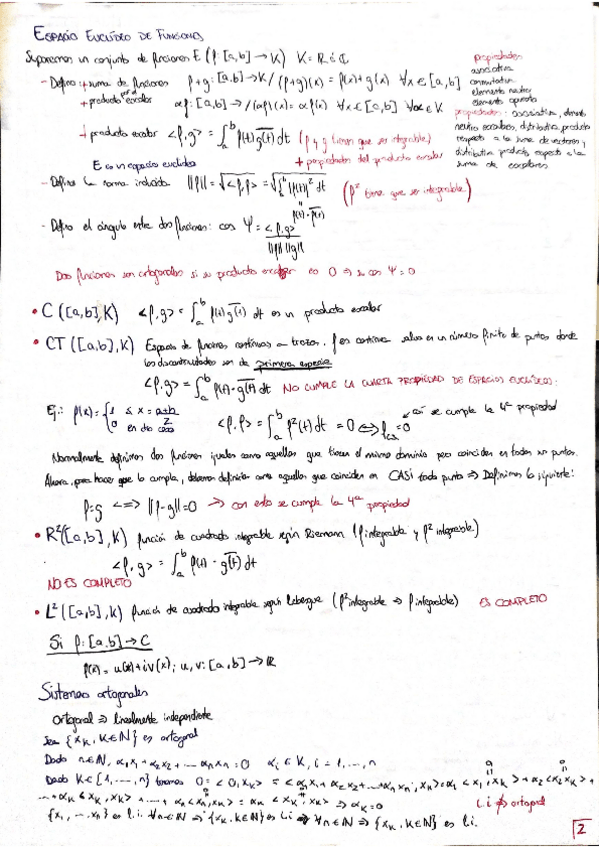 ESPACIO EUCLÍDEO DE FUNCIONES
Suponemos un conjunto de funciones E (f: [a,b] → K) K = R ó C
propiedades
asociativa
conmutativa
elemento neutro
elemento opuesto
- Defino: + suma de funciones f+g: [a,b] → K / (f+g)(x) = f(x)+g(x) ∀x ∈ [a,b]
+ producto por el escalar αf: [a,b] → / (αf)(x) = αf(x) ∀x ∈ [a,b] ∀α∈K
propiedades: asociativa, elemento
neutro escalares, distributiva producto
respecto a la suma de vectores y
distributiva producto respecto a la
suma de escalares
+ producto escalar <f,g> = ∫_a^b f(t) \overline{g(t)} dt (f y g tienen que ser integrable)
+ propiedades del producto escalar
E es un espacio euclídeo
- Defino la norma inducida ||f|| = √<f,f> = √∫_a^b |f(t)|² dt (f² tiene que ser integrable)
f(t)·\overline{f(t)}
- Defino el ángulo entre dos funciones: cos Ψ = <f,g> / ||f|| ||g||
Dos funciones son ortogonales si su producto escalar es 0 ⇒ su cos Ψ = 0
• C([a,b],K) <f,g> = ∫_a^b f(t) \overline{g(t)} dt es un producto escalar
• CT([a,b],K) Espacio de funciones continuas a trozos. f es continua salvo en un número finito de puntos donde
las discontinuidades son de primera especie
<f,g> = ∫_a^b f(t)·\overline{g(t)} dt NO CUMPLE LA CUARTA PROPIEDAD DE ESPACIOS EUCLÍDEOS:
Ej.: f(x) = {1 si x = (a+b)/2
0 en otro caso
<f,f> = ∫_a^b f²(t) dt = 0 ⇔ f = 0
así se cumple la 4ª propiedad
Normalmente definimos dos funciones iguales como aquellas que tienen el mismo dominio pero coinciden en todos sus puntos.
Ahora, para hacer que lo cumpla, debemos definirlas como aquellas que coinciden en CASI todo punto ⇒ Definimos lo siguiente:
f=g <=> ||f-g||=0 → con esto se cumple la 4ª propiedad
• R²([a,b],K) función de cuadrado integrable según Riemann (f integrable y f² integrable)
<f,g> = ∫_a^b f(t)·\overline{g(t)} dt
NO ES COMPLETO
• L²([a,b],K) función de cuadrado integrable según Lebesgue (f² integrable ⇒ f integrable) ES COMPLETO
Si f: [a,b] → C
f(x) = u(x)+iv(x); u,v: [a,b] → R
Sistemas ortogonales
ortogonal ⇒ linealmente independiente
Sea {x_k, k∈N} es ortogonal
Dado n∈N, α₁x₁ + α₂x₂ + ... αₙxₙ = 0 αᵢ ∈ K, i = 1, ..., n
Dado K∈{1, ..., n} tenemos 0 = <0,x_k> = <α₁x₁ + α₂x₂ + ... + αₙxₙ, x_k> = α₁<x₁,x_k> + α₂<x₂,x_k> +
... + α_k<x_k,x_k> + ... + αₙ<xₙ,x_k> = α_k<x_k,x_k> ⇒ α_k = 0
l.i ⇏ ortogonal
{x₁, ... xₙ} es l.i. ∀n∈N ⇒ {x_k, k∈N} es l.i ⇒ ∀n∈N ⇒ {x_k, k∈N} es l.i.
2